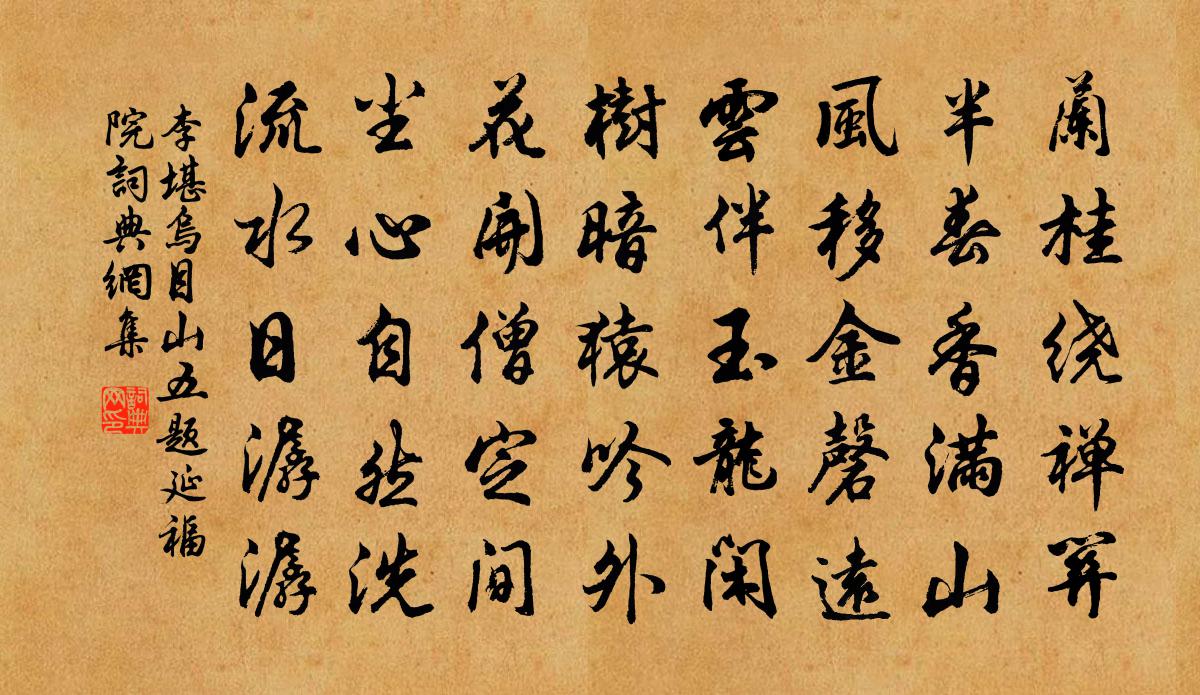 蘭桂绕禅关
半春香满山
風移金磬遠
雲伴玉龍闲
樹暗猿吟外
花開僧定间
尘心自然洗
流水日潺潺
李堪烏目山五题延福
院詞典網集
詞典
网印